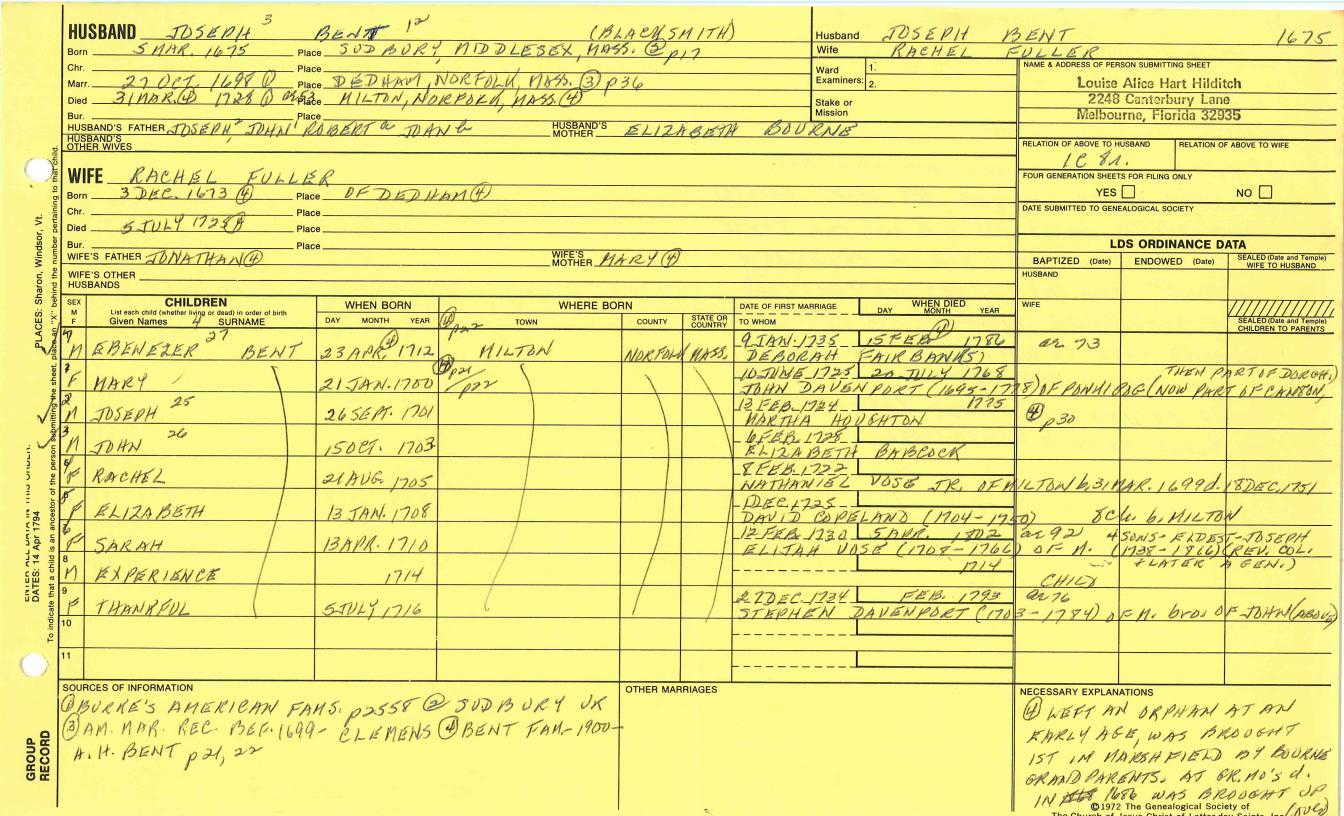 HUSBAND JOSEPH 3 BENT 12 (BLACKSMITH)
Born 5 MAR. 1675 Place SUDBURY, MIDDLESEX, MASS. ② p17
Chr. Place
Marr. 27 OCT. 1698 ① Place DEDHAM, NORFOLK, MASS. ③ p36
Died 31 MAR. ④ 1728 ① ae 53 Place MILTON, NORFOLK, MASS. ④
Bur. Place
HUSBAND'S FATHER JOSEPH 2 JOHN 1 ROBERT a JOHN b HUSBAND'S MOTHER ELIZABETH BOURNE
HUSBAND'S OTHER WIVES
Husband JOSEPH BENT 1675
Wife RACHEL FULLER
Ward Examiners: 1. 2.
Stake or Mission
NAME & ADDRESS OF PERSON SUBMITTING SHEET
Louise Alice Hart Hilditch
2248 Canterbury Lane
Melbourne, Florida 32935
RELATION OF ABOVE TO HUSBAND RELATION OF ABOVE TO WIFE
1C 8r.
FOUR GENERATION SHEETS FOR FILING ONLY
YES NO
DATE SUBMITTED TO GENEALOGICAL SOCIETY
WIFE RACHEL FULLER
Born 3 DEC. 1673 ④ Place OF DEDHAM ④
Chr. Place
Died 5 JULY 1725 Place
Bur. Place
WIFE'S FATHER JONATHAN ④ WIFE'S MOTHER MARY ④
WIFE'S OTHER HUSBANDS
LDS ORDINANCE DATA
BAPTIZED (Date) ENDOWED (Date) SEALED (Date and Temple) WIFE TO HUSBAND
HUSBAND
WIFE
SEALED (Date and Temple) CHILDREN TO PARENTS
SEX M F CHILDREN WHEN BORN WHERE BORN DATE OF FIRST MARRIAGE WHEN DIED
List each child (whether living or dead) in order of birth
Given Names 4 SURNAME DAY MONTH YEAR TOWN COUNTY STATE OR COUNTRY TO WHOM DAY MONTH YEAR
① p22
7 M EBENEZER 27 BENT 23 APR. ④ 1712 MILTON NORFOLK MASS. 9 JAN. 1735 15 FEB. ① 1786 ae 73
DEBORAH FAIRBANK(S)
1 F MARY 21 JAN. 1700 ④ p21 p22 10 JUNE 1725 20 JULY 1768 THEN PART OF DORCH.)
JOHN DAVENPORT (1695-1778) OF PONKIPOG (NOW PART OF CANTON,
2 M JOSEPH 25 26 SEPT. 1701 13 FEB. 1724 1775
MARTHA HOUGHTON ④ p30
3 M JOHN 26 15 OCT. 1703 6 FEB. 1728
ELIZABETH BABCOCK
4 F RACHEL 21 AUG. 1705 8 FEB. 1722
NATHANIEL VOSE JR. OF MILTON b. 31 MAR. 1699 d. 18 DEC. 1751
5 F ELIZABETH 13 JAN. 1708 1 DEC. 1725
DAVID COPELAND (1704-1750) 8 ch. b. MILTON
6 F SARAH 13 APR. 1710 12 FEB. 1730 5 APR. 1802 ae 92 4 SONS - ELDEST - JOSEPH
ELIJAH VOSE (1708-1766) OF M. (1738-1816) (REV. COL.
+ LATER A GEN.)
8 M EXPERIENCE 1714 1714 CHILD
9 F THANKFUL 5 JULY 1716 27 DEC. 1734 FEB. 1793 ae 76
STEPHEN DAVENPORT (1703-1784) OF M. bro. OF JOHN (ABOVE)
10
11
SOURCES OF INFORMATION
① BURKE'S AMERICAN FAMS. p2558 ② SUDBURY VR
③ AM. MAR. REC. BEF. 1699 - CLEMENS ④ BENT FAM. - 1900 -
A.H. BENT p21, 22
OTHER MARRIAGES
NECESSARY EXPLANATIONS
④ LEFT AN ORPHAN AT AN
EARLY AGE, WAS BROUGHT
1ST IN MARSHFIELD BY BOURNE
GRANDPARENTS. AT GR. MO'S d.
IN 1686 WAS BROUGHT UP
(OVER)
©1972 The Genealogical Society of
The Church of Jesus Christ of Latter-day Saints, Inc.
PLACES: Sharon, Windsor, Vt.
ENTER ALL DATA IN THIS ORDER:
DATES: 14 Apr 1794
To indicate that a child is an ancestor of the person submitting the sheet, place an "X" behind the number pertaining to that child.
GROUP RECORD